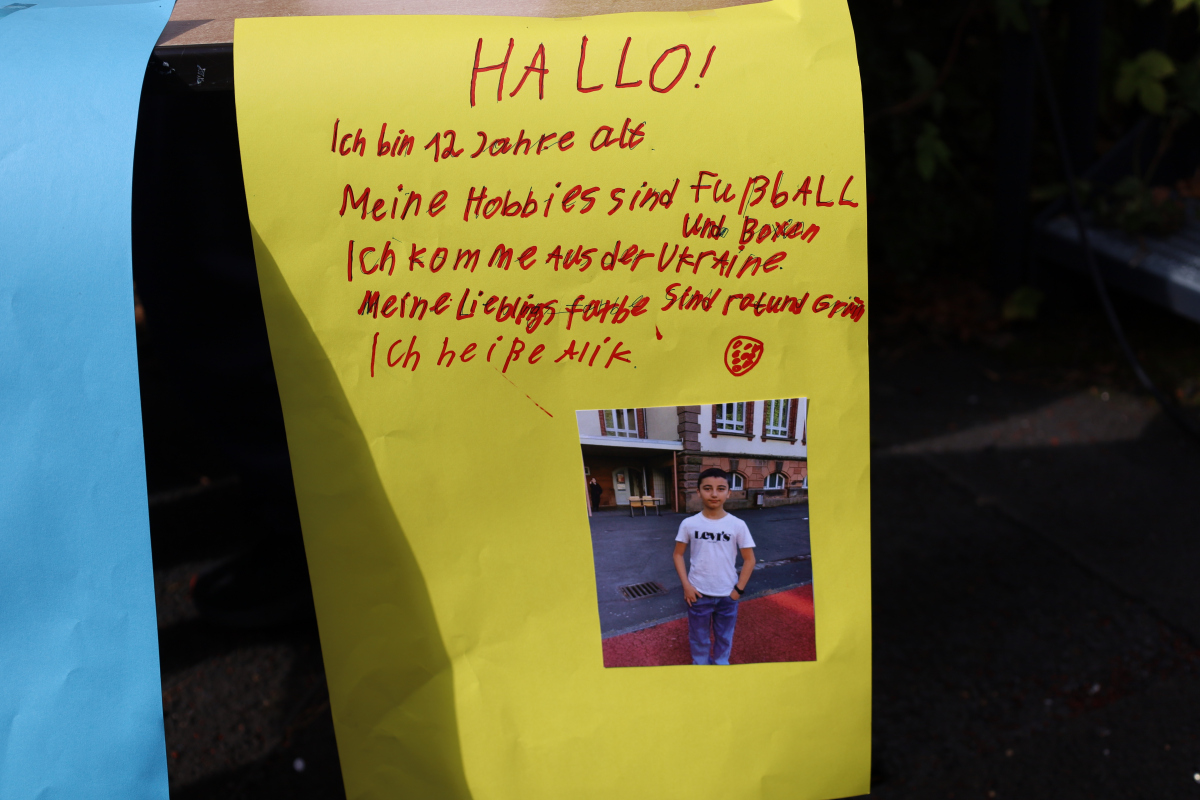 HALLO!
Ich bin 12 Jahre alt
Meine Hobbies sind FußbALL
und Boxen
Ich komme Aus der UkrAine.
Meine Lieblings farbe Sind rot und Grün
Ich heiße Alik.
Levi's